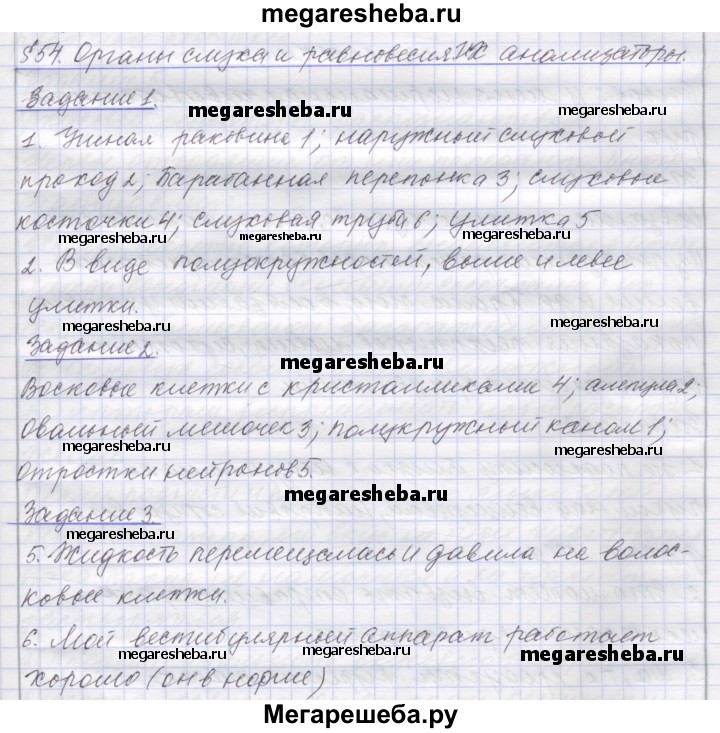 megaresheba.ru
§54. Органы слуха и равновесия. Их анализаторы.
Задание 1.
megaresheba.ru
megaresheba.ru
1. Ушная раковина 1; наружный слуховой
проход 2; Барабанная перепонка 3; слуховые
косточки 4; слуховая труба 6; улитка 5
megaresheba.ru
megaresheba.ru
megaresheba.ru
2. В виде полуокружностей, выше и левее
улитки.
megaresheba.ru
megaresheba.ru
Задание 2.
megaresheba.ru
Восковые клетки с кристалликами 4; ампула 2;
Овальный мешочек 3; полукружный канал 1;
megaresheba.ru
megaresheba.ru
Отростки нейронов 5.
megaresheba.ru
Задание 3
megaresheba.ru
5. Жидкость перемещалась и давила на волос-
ковые клетки.
6. Мой вестибулярный аппарат работает
megaresheba.ru
megaresheba.ru
megaresheba.ru
хорошо (он в норме)
Мегарешеба.ру